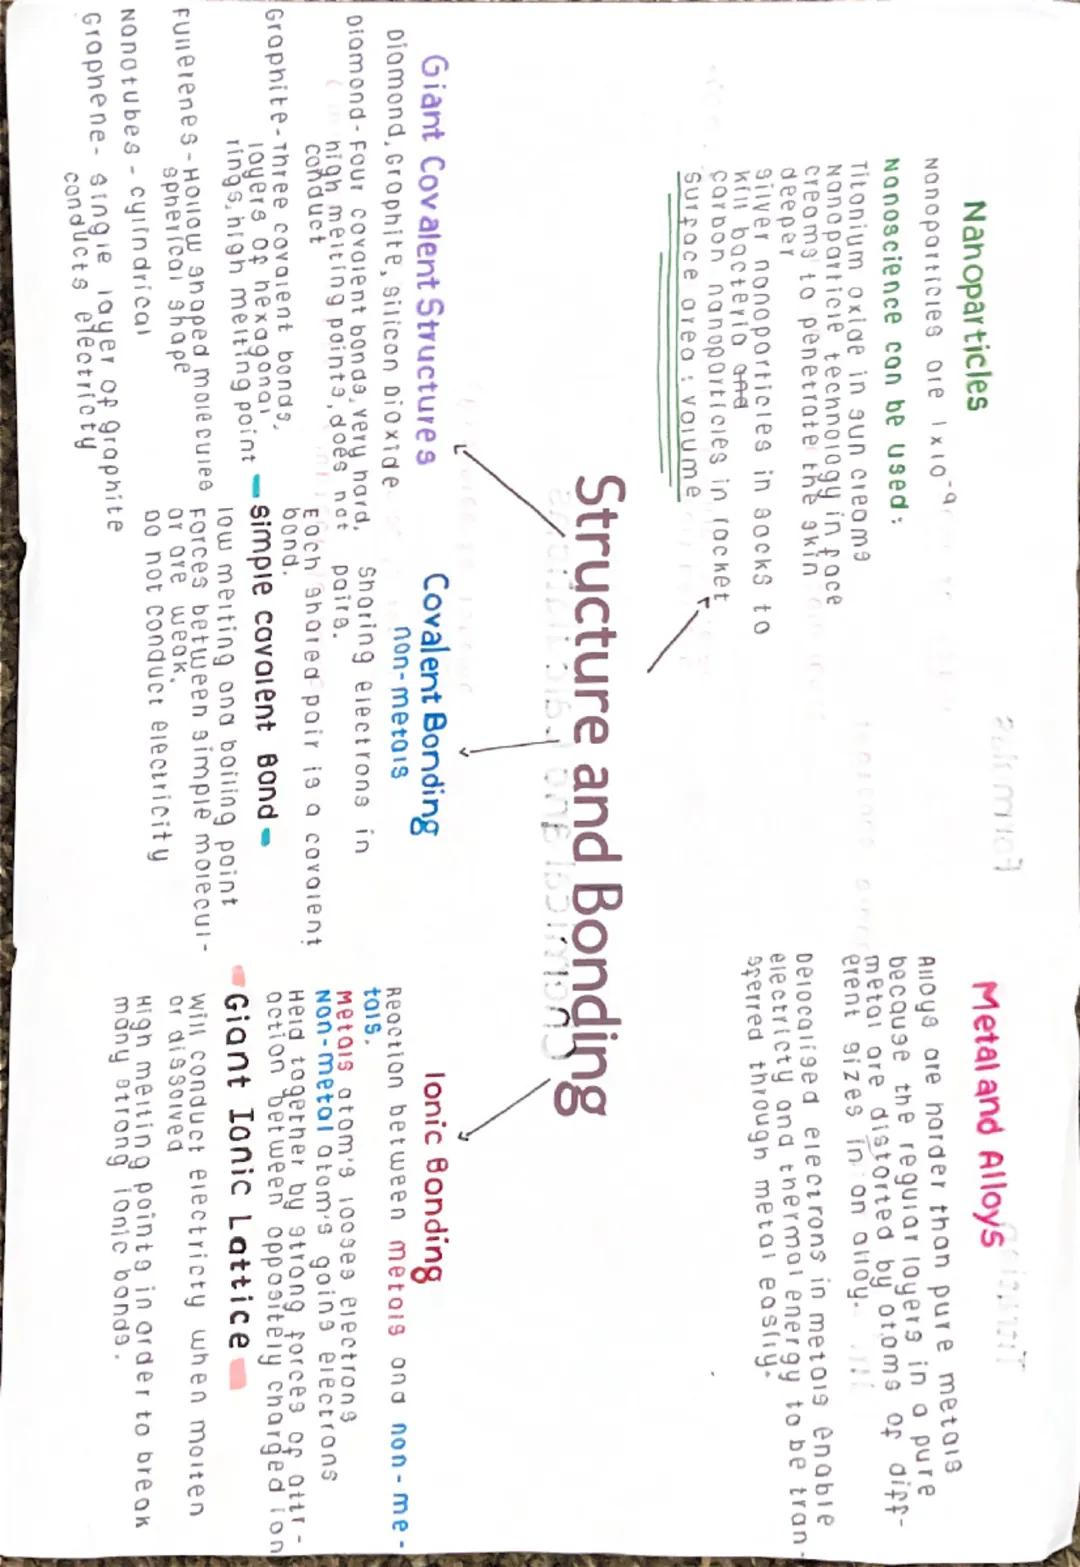 Nanoparticles
Nanoparticles are 1x10⁻⁹
Nanoscience can be used:
Titanium oxide in sun creams
Nanoparticle technology in face
creams to penetrate the skin
deeper
Silver nanoparticles in socks to
kill bacteria and
Carbon nanoparticles in racket
surface area : volume
Metal and Alloys
Alloys are harder than pure metals
because the regular layers in a pure
metal are distorted by atoms of diff-
erent sizes in an alloy.
Delocalised electrons in metals enable
electricty and thermal energy to be tran-
sferred through metal easily.
Structure and Bonding
Giant Covalent Structures
Diamond, Graphite, Silicon Dioxide
Diamond - Four covalent bonds, very hard,
high melting points, does not
conduct
Graphite - Three covalent bonds,
layers of hexagonal
rings, high melting point
Fullerenes - Hollow shaped molecules
spherical shape
Nanotubes - cylindrical
Graphene - single layer of graphite
conducts electricity
Covalent Bonding
non-metals
Sharing electrons in
pairs.
Each shared pair is a covalent
bond.
simple covalent Bond
low melting and boiling point
Forces between simple molecul-
ar are weak.
Do not conduct electricity
Ionic Bonding
Reaction between metals and non-me-
tals.
Metals atom's looses electrons
Non-metal atom's gains electrons
Held together by strong forces of attr-
action between oppositely charged ion
Giant Ionic Lattice
Will conduct electricty when molten
or dissolved
High melting points in order to break
many strong ionic bonds.